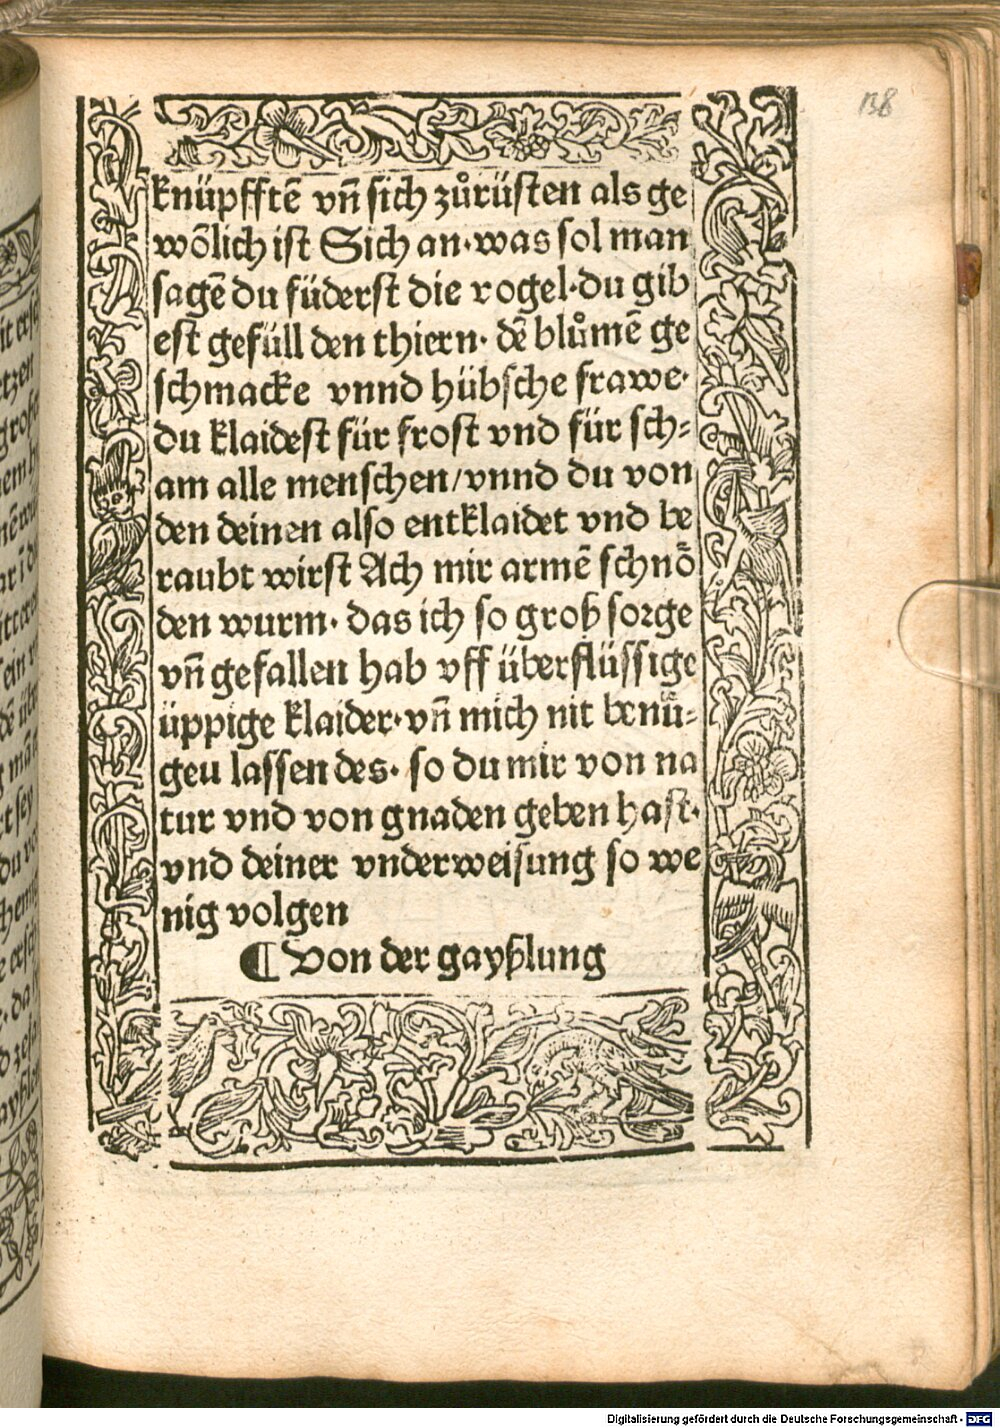 138
knüpfftē vn̄ sich zůrüsten als ge
wōlich ist Sich an·was sol man
sagē du füderst die vogel·du gib
est gefüll den thiern· dē blůmē ge
schmacke vnnd hübsche frawe·
du klaidest für frost vnd für sch⸗
am alle menschen/vnnd du von
den deinen also entklaidet vnd be
raubt wirst Ach mir armē schnō
den wurm· das ich so groß sorge
vn̄ gefallen hab vff überflüssige
üppige klaider·vn̄ mich nit benů⸗
geu lassen des· so du mir von na
tur vnd von gnaden geben hast·
vnd deiner vnderweisung so we
nig volgen
¶ Von der gayßlung
Digitalisierung gefördert durch die Deutsche Forschungsgemeinschaft - DFG